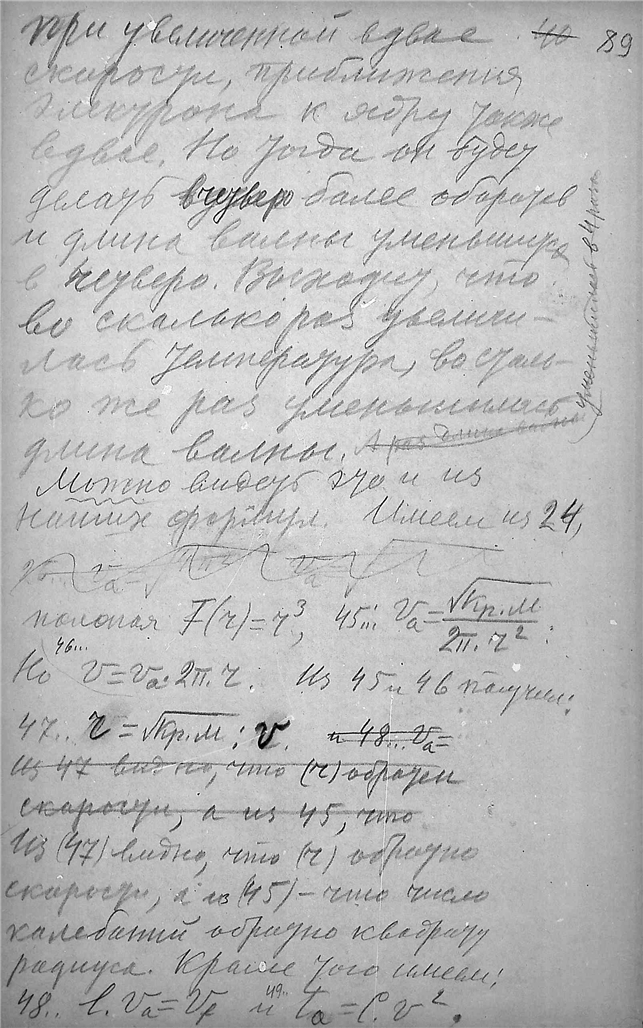 при увеличенной вдвое 40 89
скорости, приближения
электрона к ядру также
вдвое. Но тогда он будет
делать вчетверо более оборотов
и длина волны уменьшится
в четверо. Выходит, что
во сколько раз увеличи-
лась температура, во столь-
ко же раз уменьшилась
(уменьшилась в 4 раза
длина волны. А раз длина волны
Можно видеть это и из
наших формул. Имеем из 24,
полагая F(r)=r³, 45.. Vₐ=√Кр.М / 2π.r² :
Но 46... v=vₐ.2π.r. Из 45 и 46 получем:
47.. r=√Кр.М : v. и 48...Vₐ=
из 47 видно, что (r) обратен
скорости, а из 45, что
Из (47) видно, что (r) обратно
скорости, а из (45) – что число
колебаний обратно квадрату
радиуса. Кроме того имеем:
48.. l.vₐ=v и 49.. tₐ=C.v².